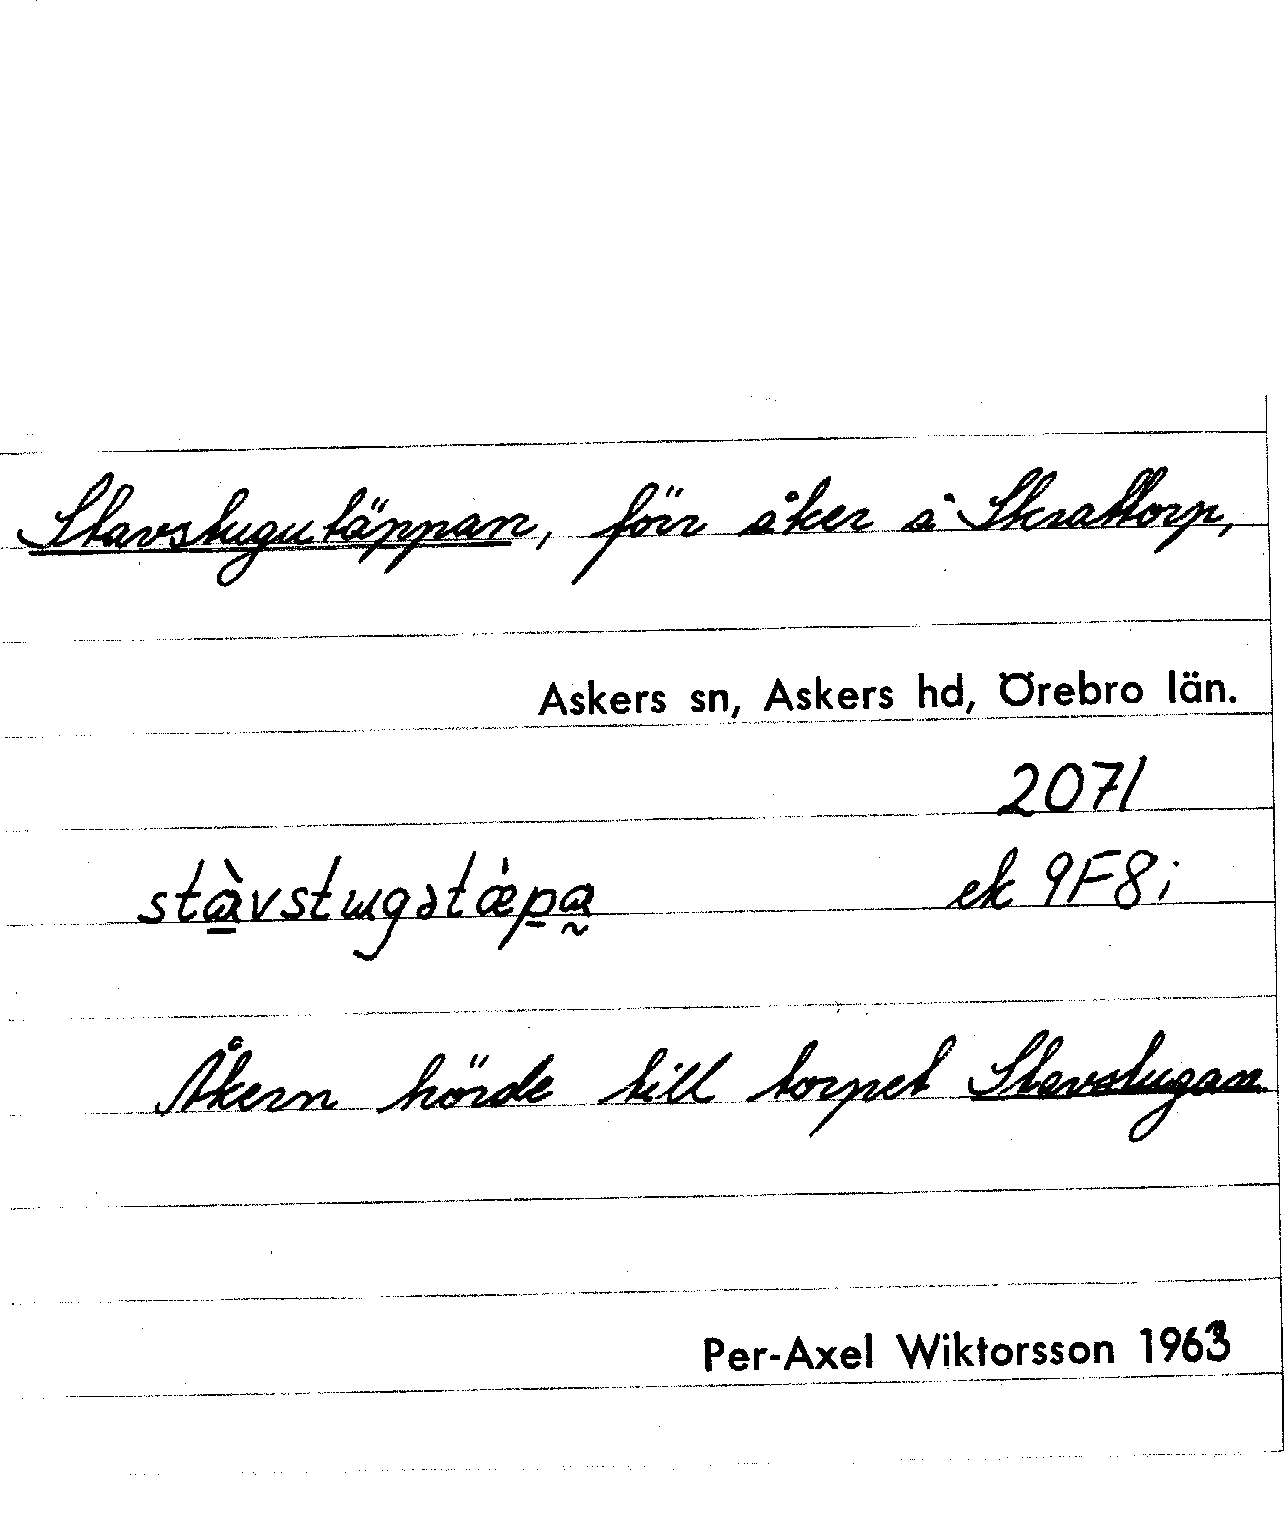 Stavstugutäppan, förr åker å Skrattorp,
Askers sn, Askers hd, Örebro län.
2071
stàvstɯgətǽpa ek 9F8i
Åkern hörde till torpet Stavstugan
Per-Axel Wiktorsson 1963